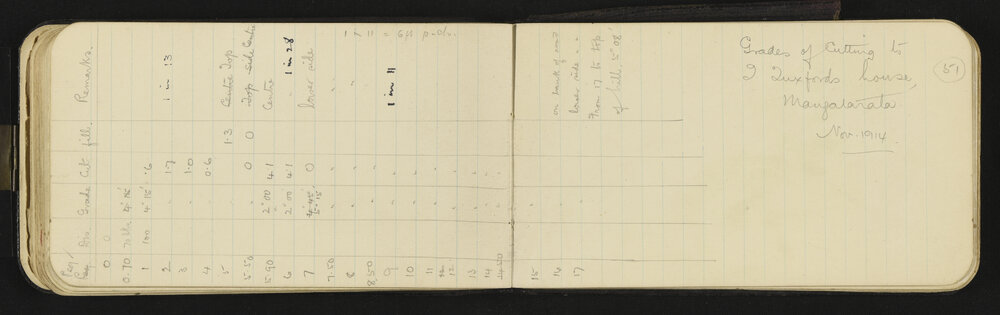 Peg/ Dis. Grade Cut fill. Remarks.
0 0
0.70 4°15'
1 100 4°15' .6
2 " 1.7 1 in 13
3 " 1.0
4 " 0.6
5 1.3 Centre Top
5.50 " 0 0 Top side Centre
5.90 2°00 4.1 Centre
6 2°00 4.1 " 1 in 28
7 5°15 0 lower side
7.50 " " "
8 " " "
8.50 " "
9 " " 1 in 11
10 " "
11 " "
12 " "
13 " "
14 " "
14.50 " "
15 " "
16 " " on bank of
17 " " lower side " "
From 17 to top
of hill. 5.98
Grades of Cutting to
Luxfords house,
Mangatarata
Nov. 1914
57